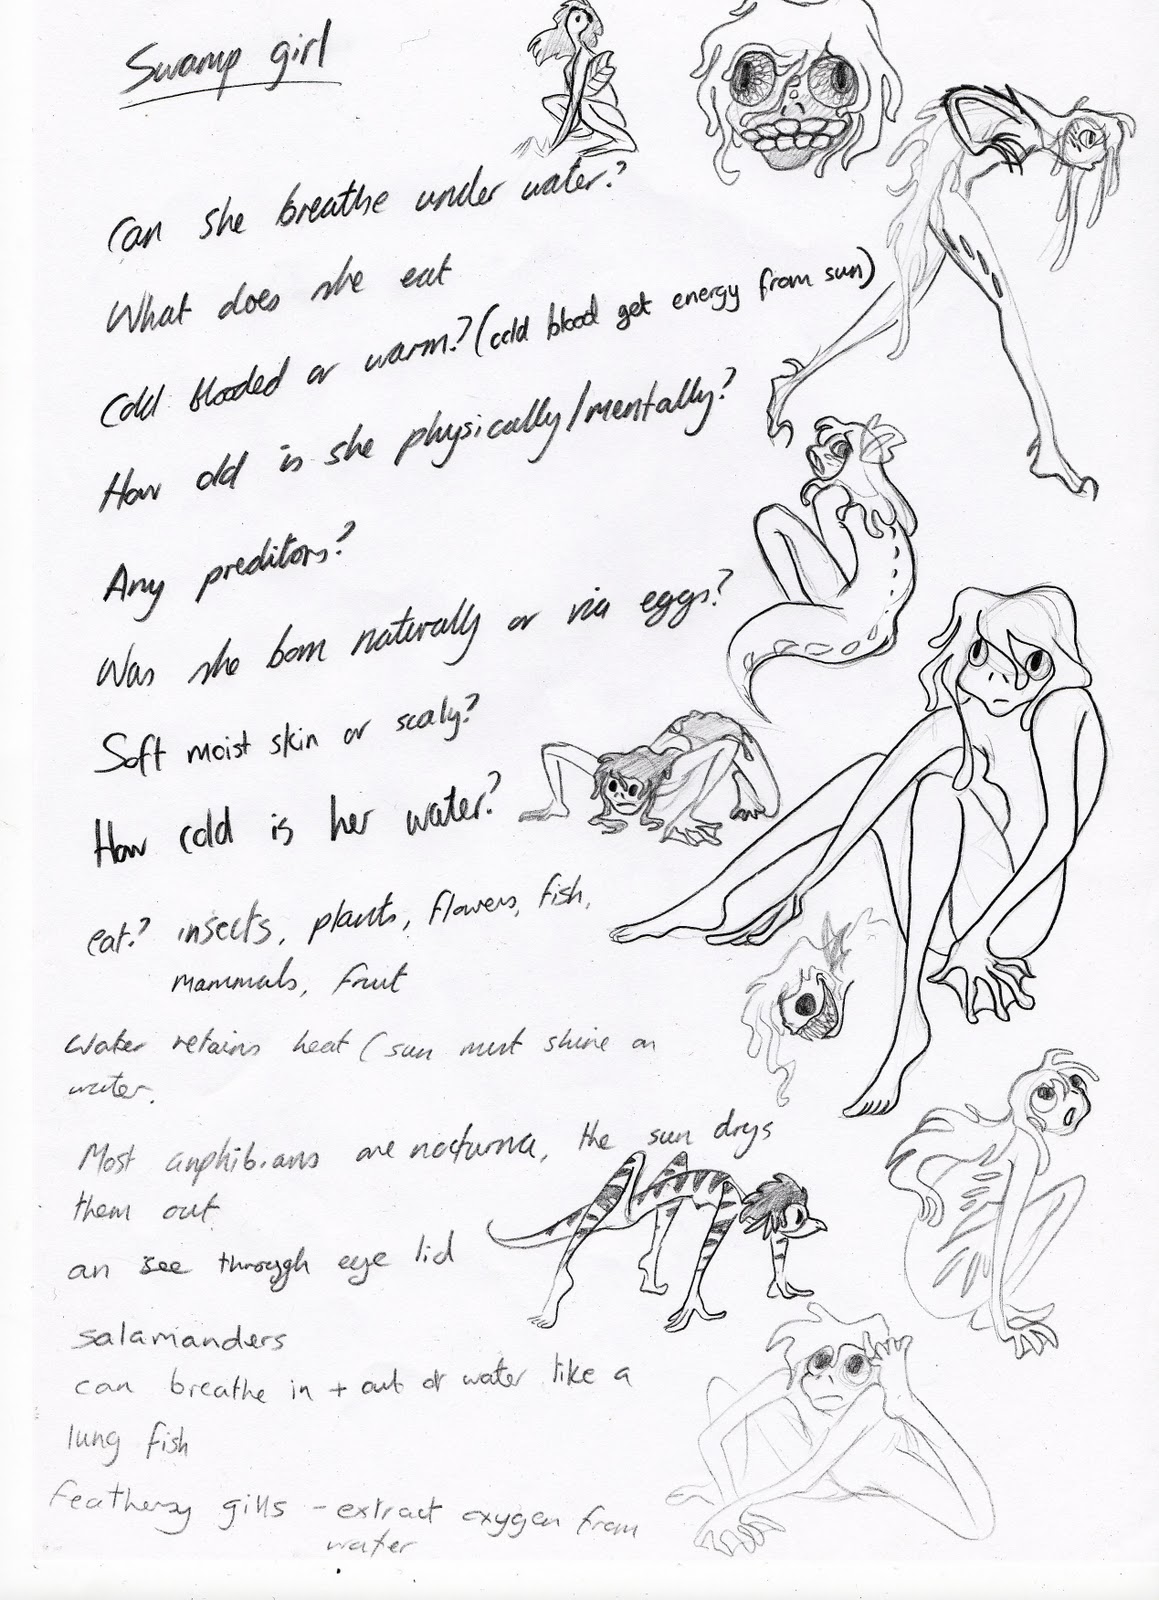 Swamp girl
Can she breathe under water?
What does she eat
Cold blooded or warm? (cold blood get energy from sun)
How old is she physically/mentally?
Any preditors?
Was she born naturally or via eggs?
Soft moist skin or scaly?
How cold is her water?
eat? insects, plants, flowers, fish,
mammals, fruit
Water retains heat (sun must shine on
water.
Most amphibians are nocturna, the sun drys
them out
an see through eye lid
salamanders
can breathe in + out of water like a
lung fish
feathersy gills - extract oxygen from
water